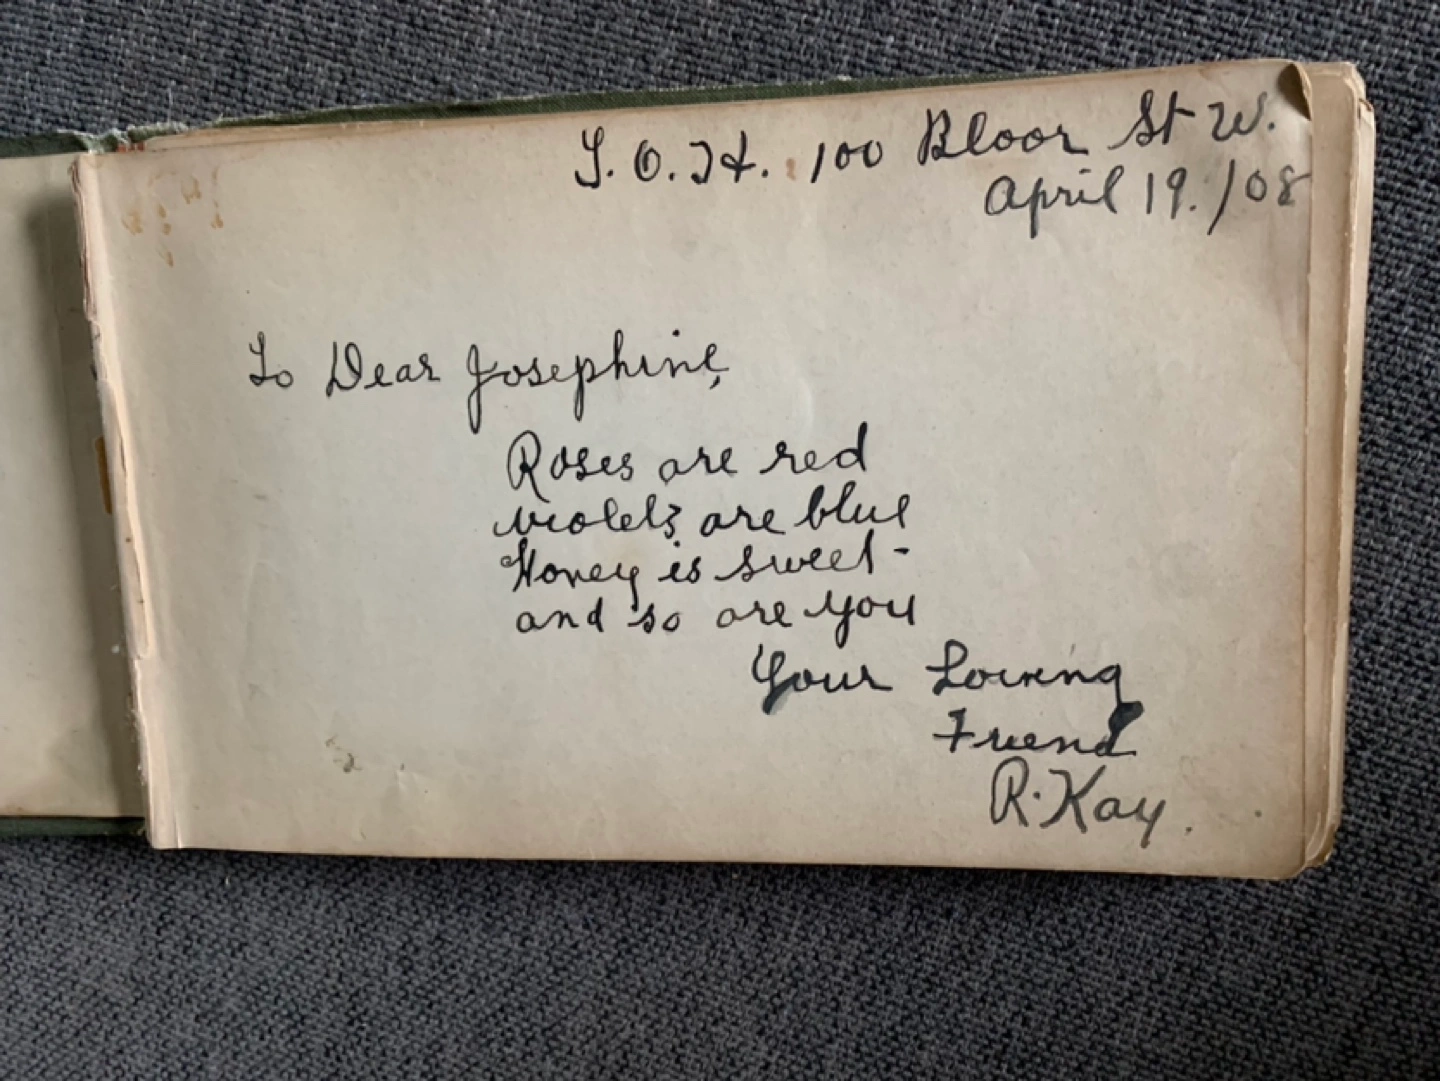 T. O. H. 100 Bloor St W.
April 19./08
To Dear Josephine,
Roses are red
violets are blue
Honey is sweet -
and so are you
Your Loving
Friend
R. Kay.